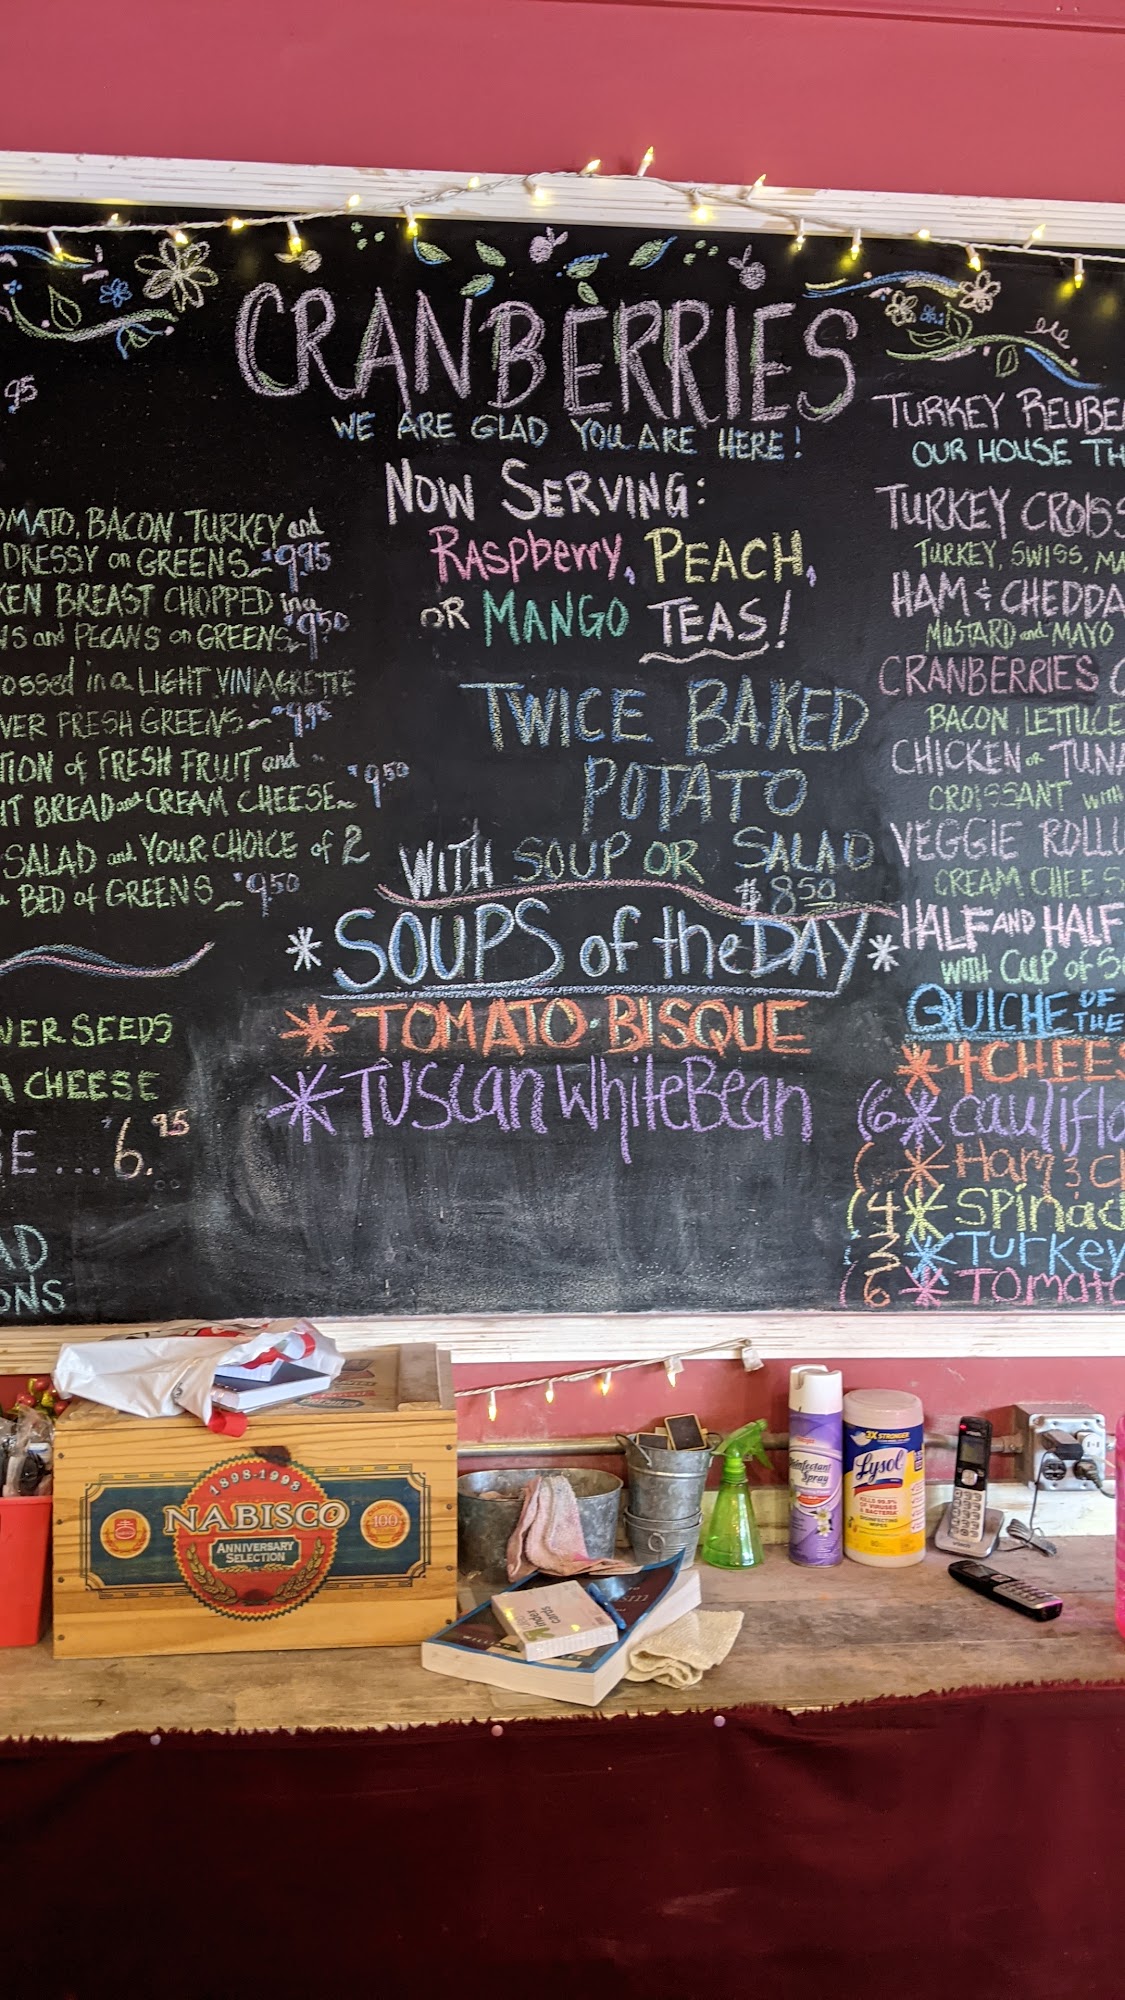 CRANBERRIES
WE ARE GLAD YOU ARE HERE!
NOW SERVING:
RASPBERRY, PEACH,
OR MANGO TEAS!
TWICE BAKED
POTATO
WITH SOUP OR SALAD
$8.50
*SOUPS of the DAY*
*TOMATO·BISQUE
*TUSCAN WHITE BEAN
95
OMATO, BACON, TURKEY and
DRESSY on GREENS $9.95
KEN BREAST CHOPPED in a
NS and PECANS on GREENS $9.50
TOSSED in a LIGHT VINIAGRETTE
VER FRESH GREENS $9.95
TION of FRESH FRUIT and
HT BREAD and CREAM CHEESE $9.50
SALAD and YOUR CHOICE of 2
BED of GREENS $9.50
WER SEEDS
A CHEESE
E...$6.95
AD
ONS
TURKEY REUBE
OUR HOUSE TH
TURKEY CROISS
TURKEY, SWISS, MA
HAM & CHEDDA
MUSTARD and MAYO
CRANBERRIES C
BACON, LETTUCE
CHICKEN OR TUNA
CROISSANT WITH
VEGGIE ROLLU
CREAM CHEES
HALF AND HALF
WITH CUP OF S
QUICHE OF THE
*4 CHEES
(6 *CAULIFLO
( *Ham & C
(4 *SPINAC
3 *Turkey
(6 *TOMATO
1898-1998
NABISCO
ANNIVERSARY
SELECTION
100
Index
cards
Disinfectant
Spray
2X STRONGER
Lysol
KILLS 99.9%
OF VIRUSES
& BACTERIA
DISINFECTING
WIPES
80